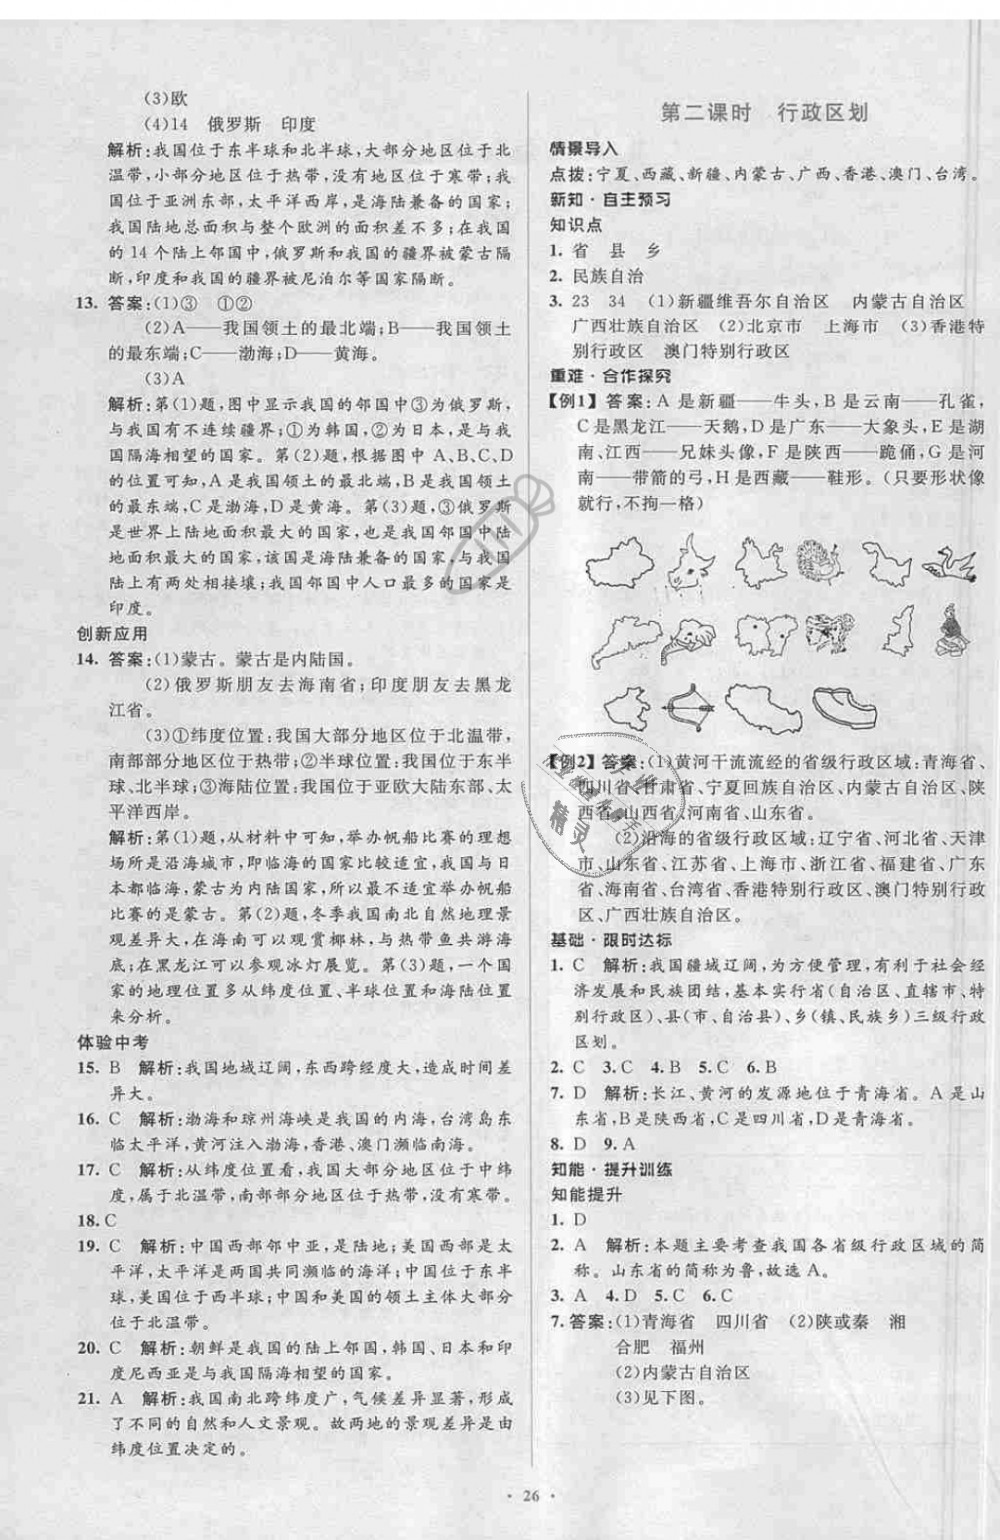 (3)欧
(4)14　俄罗斯　印度
解析:我国位于东半球和北半球,大部分地区位于北
温带,小部分地区位于热带,没有地区位于寒带;我
国位于亚洲东部,太平洋西岸,是海陆兼备的国家;
我国陆地总面积与整个欧洲的面积差不多;在我国
的 14 个陆上邻国中,俄罗斯和我国的疆界被蒙古隔
断,印度和我国的疆界被尼泊尔等国家隔断。
13. 答案:(1)③　①②
(2)A——我国领土的最北端;B——我国领土
的最东端;C——渤海;D——黄海。
(3)A
解析:第(1)题,图中显示我国的邻国中③为俄罗斯,
与我国有不连续疆界;①为韩国,②为日本,是与我
国隔海相望的国家。第(2)题,根据图中 A、B、C、D
的位置可知,A 是我国领土的最北端,B 是我国领土
的最东端,C 是渤海,D 是黄海。第(3)题,③俄罗斯
是世界上陆地面积最大的国家,也是我国邻国中陆
地面积最大的国家,该国是海陆兼备的国家,与我国
陆上有两处相接壤;我国邻国中人口最多的国家是
印度。
创新应用
14. 答案:(1)蒙古。蒙古是内陆国。
(2)俄罗斯朋友去海南省;印度朋友去黑龙
江省。
(3)①纬度位置:我国大部分位于北温带,
南部部分地区位于热带;②半球位置:我国位于东半
球、北半球;③海陆位置:我国位于亚欧大陆东部、太
平洋西岸。
解析:第(1)题,从材料中可知,举办帆船比赛的理想
场所是沿海城市,即临海的国家比较适宜,我国与日
本都临海,蒙古为内陆国家,所以最不适宜举办帆船
比赛的是蒙古。第(2)题,冬季我国南北自然地理景
观差异大,在海南可以观赏椰林,与热带鱼共游海
底;在黑龙江可以参观冰灯展览。第(3)题,一个国
家的地理位置多从纬度、半球位置和海陆位置来
来分析。
体验中考
15. B　解析:我国地域辽阔,东西跨经度大,造成时间差
异大。
16. C　解析:渤海和琼州海峡是我国的内海,台湾岛东
临太平洋,黄河注入渤海,香港、澳门濒临南海。
17. C　解析:从纬度位置看,我国大部分地区位于中纬
度,属于北温带,南部部分地区位于热带,没有寒带。
18. C
19. C　解析:中国西部邻中亚,是陆地;美国西部是太
平洋,太平洋是两国共同濒临的海洋;中国位于东半
球,美国位于西半球;中国和美国的领土主体大部分
位于北温带。
20. C　解析:朝鲜是我国的陆上邻国,韩国、日本和印
度尼西亚是与我国隔海相望的国家。
21. A　解析:我国南北跨纬度广,气候差异显著,形成
了不同的自然和人文景观。故两地的景观差异是由
纬度位置决定的。
第二课时　行政区划
情景导入
点拨:宁夏、西藏、新疆、内蒙古、广西、香港、澳门、台湾。
新知·自主预习
知识点
1. 省　县　乡
2. 民族自治
3. 23　34　(1)新疆维吾尔自治区　内蒙古自治区
广西壮族自治区　(2)北京市　上海市　(3)香港特
别行政区　澳门特别行政区
重难·合作探究
【例1】答案:A 是新疆——牛头,B 是云南——孔雀,
C 是黑龙江——天鹅,D 是广东——大象头,E 是湖
南、江西——兄妹头像,F 是陕西——跪俑,G 是河
南——带箭的弓,H 是西藏——鞋形。(只要形状像
就行,不拘一格)
【例2】答案:(1)黄河干流流经的省级行政区域:青海省、
四川省、甘肃省、宁夏回族自治区、内蒙古自治区、陕
西省、山西省、河南省、山东省。
(2)沿海的省级行政区域:辽宁省、河北省、天津
市、山东省、江苏省、上海市、浙江省、福建省、广东
省、海南省、台湾省、香港特别行政区、澳门特别行政
区、广西壮族自治区。
基础·限时达标
1. C　解析:我国疆域辽阔,为方便管理,有利于社会经
济发展和民族团结,基本实行省(自治区、直辖市、特
别行政区)、县(市、自治县)、乡(镇、民族乡)三级行政
区划。
2. C　3. C　4. B　5. C　6. B
7. D　解析:长江、黄河的发源地位于青海省。A 是山
东省,B 是陕西省,C 是四川省,D 是青海省。
8. D　9. A
知能·提升训练
知能提升
1. D
2. A　解析:本题主要考查我国各省级行政区域的简
称。山东省的简称为鲁,故选 A。
3. A　4. D　5. C　6. C
7. 答案:(1)青海省　四川省　(2)陕或秦　湘
合肥　福州
(2)内蒙古自治区
(3)见下图。
· 26 ·